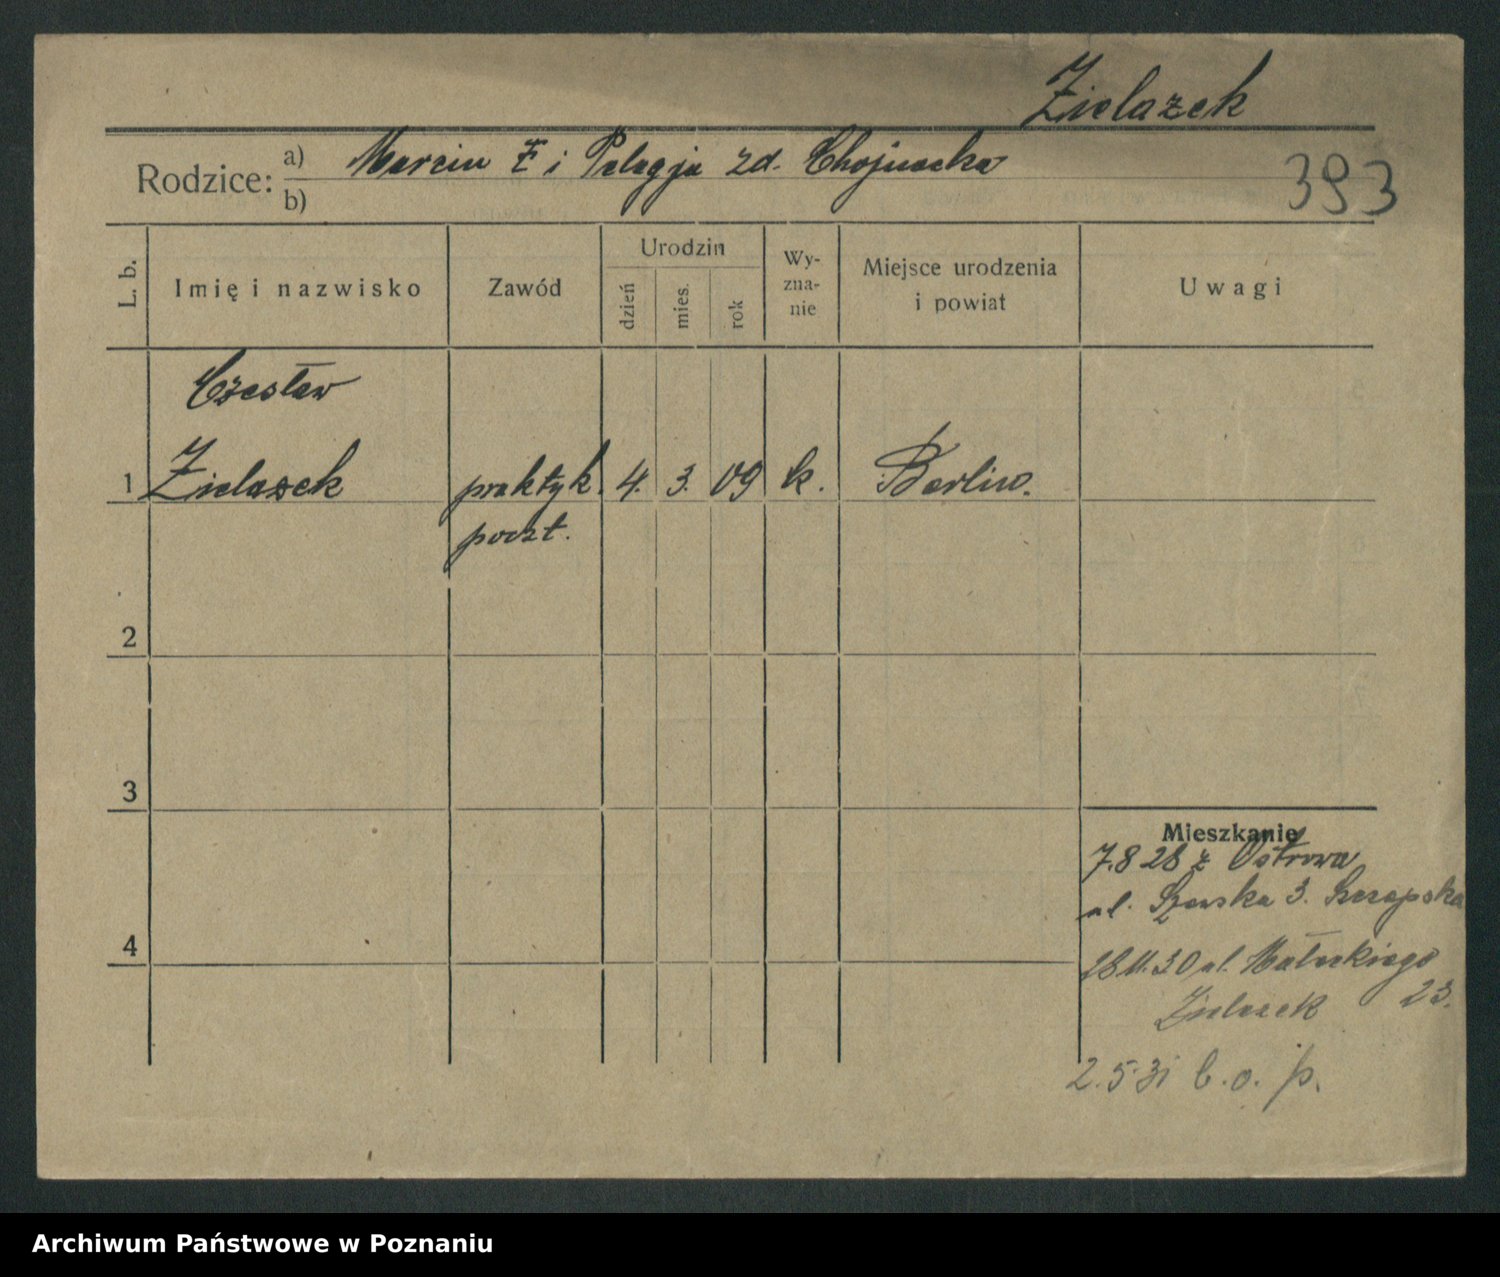 Zielazek
Rodzice: a) Marcin Z i Pelagja zd. Chojnacka
b)
393
L. b. Imię i nazwisko Zawód Urodzin dzień mies. rok Wy-zna-nie Miejsce urodzenia i powiat Uwagi
Czesław
1 Zielazek praktyk. 4. 3. 09 k. Berlin.
poczt.
2
3
Mieszkanie
7.8 28 z Ostrowa
ul. Szewska 3.
4
28 11.30 ul. Małeckiego
Zielazek 23.
2.5.31 b.o. p.
Archiwum Państwowe w Poznaniu